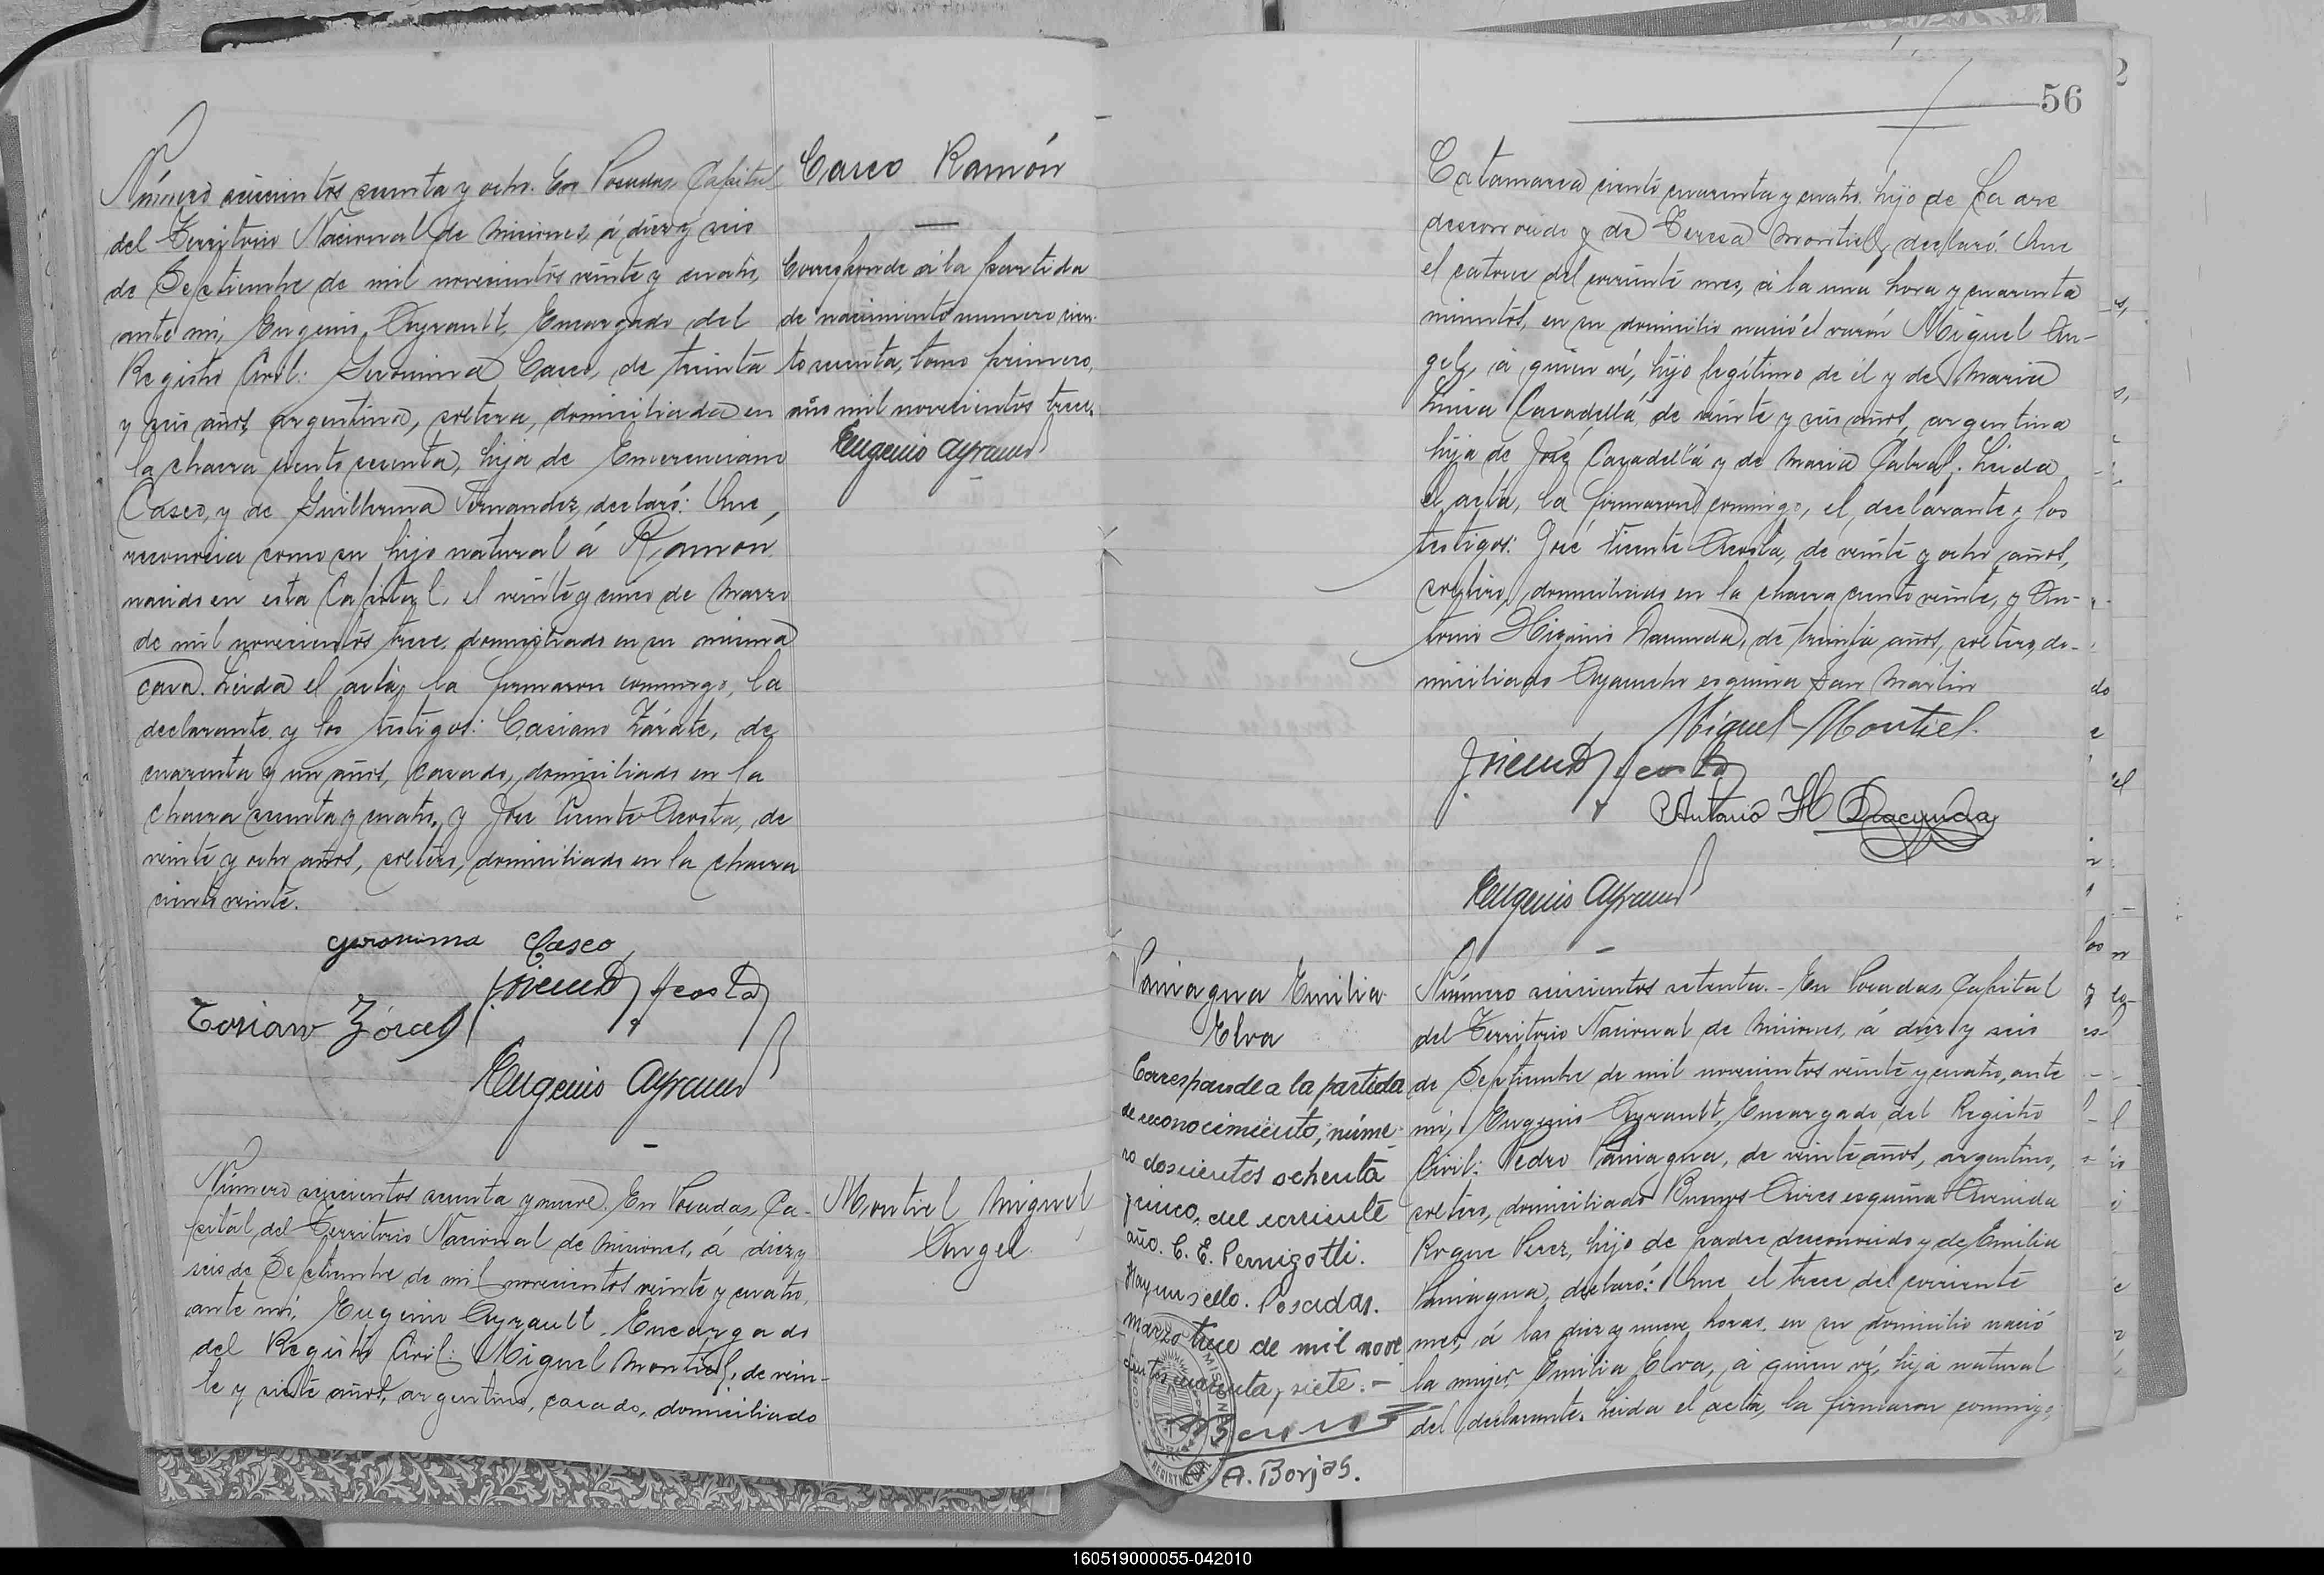 Número seiscientos sesenta y ocho. En Posadas, Capital
del Territorio Nacional de Misiones, á diez y seis
de Septiembre de mil novecientos veinte y cuatro,
ante mí, Eugenio Ayrault, Encargado del
Registro Civil: Geronima Casco, de treinta
y seis años, argentina, soltera, domiciliada en
la chacra ciento sesenta, hija de Emerenciano
Casco, y de Guillerma Fernandez, declaró: Que,
reconocia como su hijo natural á Ramón,
nacido en esta Capital, el veinte y cinco de Marzo
de mil novecientos trece, domiciliado en su misma
casa. Leida el acta, la firmaron conmigo, la
declarante y los testigos: Casiano Zárate, de
cuarenta y un años, casado, domiciliado en la
chacra sesenta y cuatro, y José Vicente Acosta, de
veinte y ocho años, soltero, domiciliado en la chacra
ciento veinte.
Geronima Casco
J. Vicente Acosta
Eugenio Ayrault
Casco Ramón
Corresponde á la partida
de nacimiento numero cien-
to sesenta, tomo primero,
año mil novecientos trece.
Eugenio Ayrault
Número seiscientos sesenta y nueve. En Posadas, Ca-
pital, del Territorio Nacional de Misiones, á diez y
seis de Septiembre de mil novecientos veinte y cuatro,
ante mí, Eugenio Ayrault, Encargado
del Registro Civil: Miguel Montiel, de vein-
te y siete años, argentino, casado, domiciliado
Montiel Miguel
Angel.
56
Catamarca ciento cuarenta y cuatro, hijo de Pa dre
desconocido y de Teresa Montiel, declaró: Que
el catorce del corriente mes, á la una hora y cuarenta
minutos, en su domicilio nació el varón Miguel An-
gel, á quien ví, hijo legítimo de él y de Maria
Luisa Casadellá de veinte y seis años, argentina
hija de José Casadellá y de Maria Cabral. Leida
el acta, la firmaron conmigo, el declarante y los
testigos: José Vicente Acosta, de veinte y ocho años,
soltero, domiciliado en la chacra ciento veinte, y An-
tonio Higinio Dacunda, de treinta años, soltero, do-
miciliado Ayacucho esquina San Martin
Miguel Montiel.
J. Vicente Acosta
Antonio H Dacunda
Eugenio Ayrault
Paniagua Emilia
Elva
Corresponde a la partida
de reconocimiento, núme-
ro doscientos ochenta
y cinco, del corriente
año. C. E. Pernigotti.
Hay un sello. Posadas.
marzo trece de mil nove
cientos cuarenta y siete.-
A. Borjas.
Número seiscientos setenta.- En Posadas, Capital
del Territorio Nacional de Misiones, á diez y seis
de Septiembre de mil novecientos veinte y cuatro, ante
mí, Eugenio Ayrault, Encargado del Registro
Civil: Pedro Paniagua, de veinte años, argentino,
soltero, domiciliado Buenos Aires esquina Avenida
Roque Perez, hijo de padre desconocido y de Emilia
Paniagua, declaró: Que el trece del corriente
mes, á las diez y nueve horas, en su domicilio nació
la mujer Emilia Elva, á quien ví, hija natural
del declarante. Leida el acta, la firmaron conmigo,
160519000055-042010